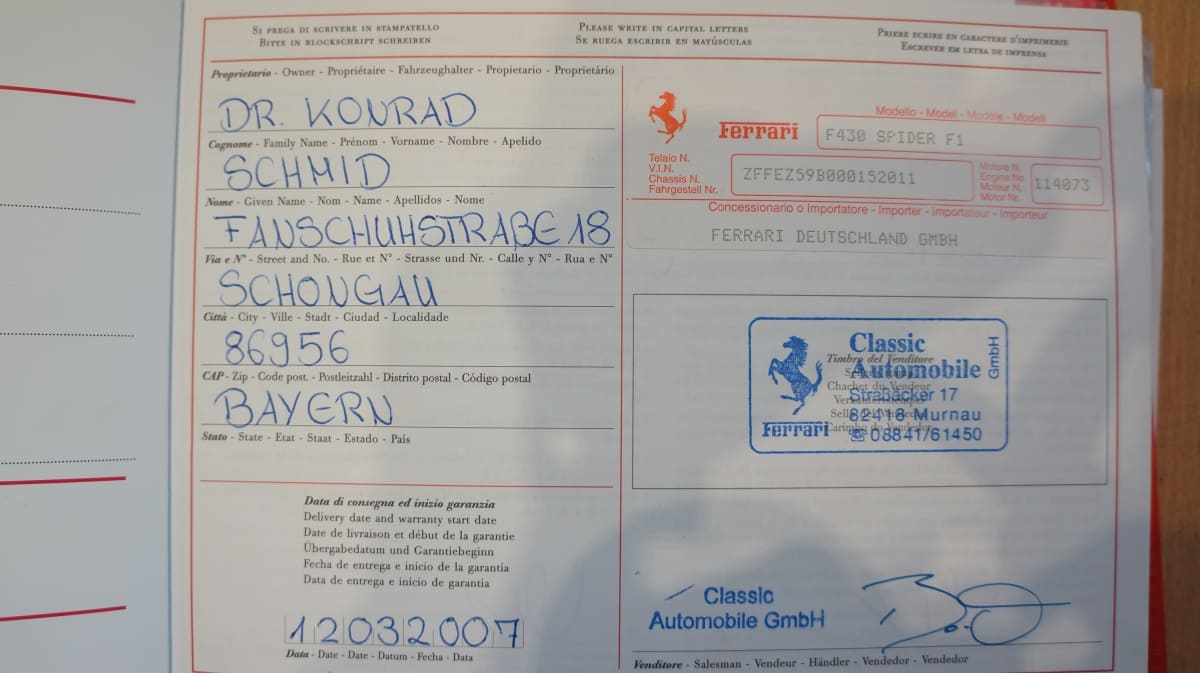 Si prega di scrivere in stampatello
Bitte in blockschrift schreiben
Please write in capital letters
Se ruega escribir en mayúsculas
Priere ecrire en caractere d'imprimerie
Escrever em letra de imprensa
Proprietario - Owner - Propriétaire - Fahrzeughalter - Propietario - Proprietário
DR. KONRAD
Cognome - Family Name - Prénom - Vorname - Nombre - Apelido
SCHMID
Nome - Given Name - Nom - Name - Apellidos - Nome
FANSCHUHSTRAßE 18
Via e N° - Street and No. - Rue et N° - Strasse und Nr. - Calle y N° - Rua e N°
SCHONGAU
Città - City - Ville - Stadt - Ciudad - Localidade
86956
CAP - Zip - Code post. - Postleitzahl - Distrito postal - Código postal
BAYERN
Stato - State - Etat - Staat - Estado - País
Data di consegna ed inizio garanzia
Delivery date and warranty start date
Date de livraison et début de la garantie
Übergabedatum und Garantiebeginn
Fecha de entrega e inicio de la garantia
Data de entrega e início de garantia
12032007
Data - Date - Date - Datum - Fecha - Data
Modello - Model - Modèle - Modell
Ferrari
F430 SPIDER F1
Telaio N.
V.I.N.
Chassis N.
Fahrgestell Nr.
ZFFEZ59B000152011
Motore N.
Engine No.
Moteur N.
Motor Nr.
114073
Concessionario o Importatore - Importer - Importateur - Importeur
FERRARI DEUTSCHLAND GMBH
Classic
Automobile GmbH
Timbro del Venditore
Chachet du Vendeur
Straßäcker 17
82418 Murnau
Ferrari
☏ 08841/61450
Carimbo do Vendedor
Classic
Automobile GmbH
Venditore - Salesman - Vendeur - Händler - Vendedor - Vendedor